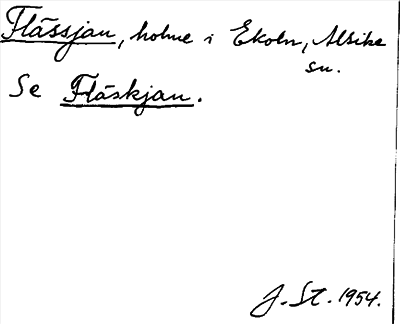 Flässjan, holme i Ekoln, Alsike
sn.
Se Fläskjan.
J. St. 1954.